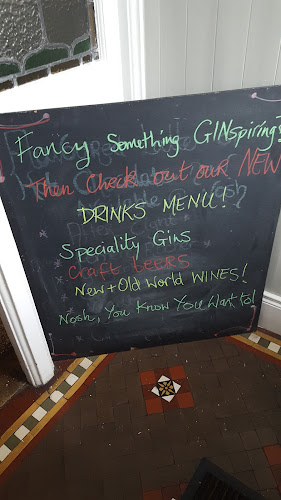 Fancy Something GINspiring?
Then Check out our NEW
DRINKS MENU!
Speciality Gins
Craft beers
New + Old World WINES!
Nosh, You Know You Want to!